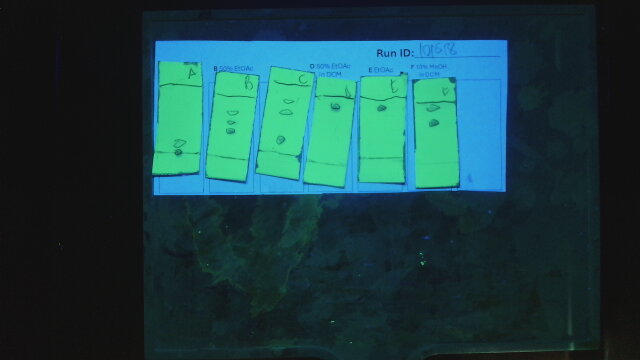 Run ID: 101518
B 50% EtOAc
D 50% EtOAc
in DCM
E EtOAc
F 10% MeOH
in DCM
A
B
C
E